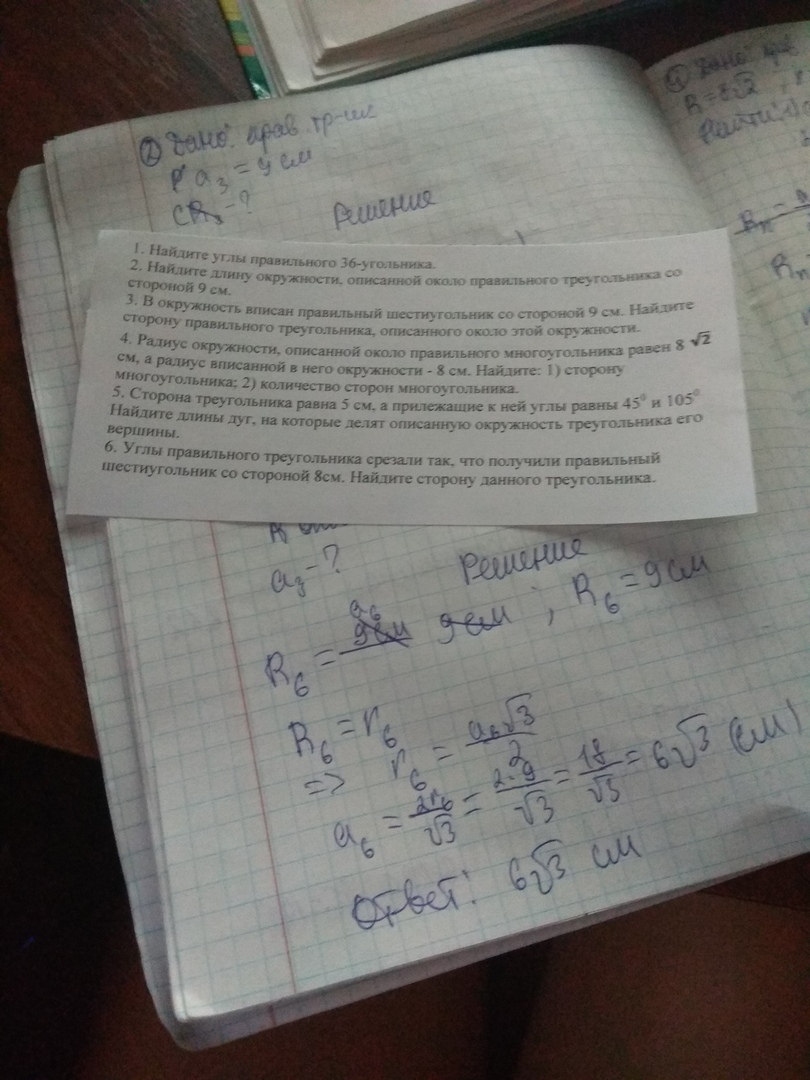 ② Дано: прав. тр-ик
a₃ = 9 см
C - ?
Решение
1. Найдите углы правильного 36-угольника.
2. Найдите длину окружности, описанной около правильного треугольника со
стороной 9 см.
3. В окружность вписан правильный шестиугольник со стороной 9 см. Найдите
сторону правильного треугольника, описанного около этой окружности.
4. Радиус окружности, описанной около правильного многоугольника равен 8 √2
см, а радиус вписанной в него окружности - 8 см. Найдите: 1) сторону
многоугольника; 2) количество сторон многоугольника.
5. Сторона треугольника равна 5 см, а прилежащие к ней углы равны 45⁰ и 105⁰
Найдите длины дуг, на которые делят описанную окружность треугольника его
вершины.
6. Углы правильного треугольника срезали так, что получили правильный
шестиугольник со стороной 8см. Найдите сторону данного треугольника.
a₃ - ?
Решение
R₆ = a₆ ; R₆ = 9 см
R₆ = r₆
=> r₆ = a₆√3/2
a₆ = 2r₆/√3 = 2·9/√3 = 18/√3 = 6√3 (см)
Ответ: 6√3 см
④ Дано: прав
R = 8√2
Найти: 1)
Rₙ